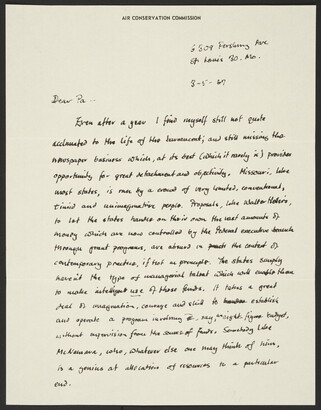 AIR CONSERVATION COMMISSION
6309 Pershing Ave
St Louis 30. Mo.
8-5-67
Dear Pa --
Even after a year I find myself still not quite
acclimated to the life of the bureaucrat; and still missing the
newspaper business which, at its best (which it rarely is) provides
opportunity for great detachment and objectivity. Missouri, like
most states, is run by a crowd of very limited, conventional,
timid and unimaginative people. Proposals, like Walter Heller's,
to let the states handle on their own the vast amounts of
money which are now controlled by the Federal executive branch
through grant programs, are absurd in the context of
contemporary practice, if not in principle. The states simply
haven't the type of managerial talent which will enable them
to make intelligent use of those funds. It takes a great
deal of imagination, courage and skill to establish
and operate a program involving, say, an eight-figure budget,
without supervision from the source of funds. Somebody like
McNamara, who, whatever else one may think of him,
is a genius at allocation of resources to a particular
end.